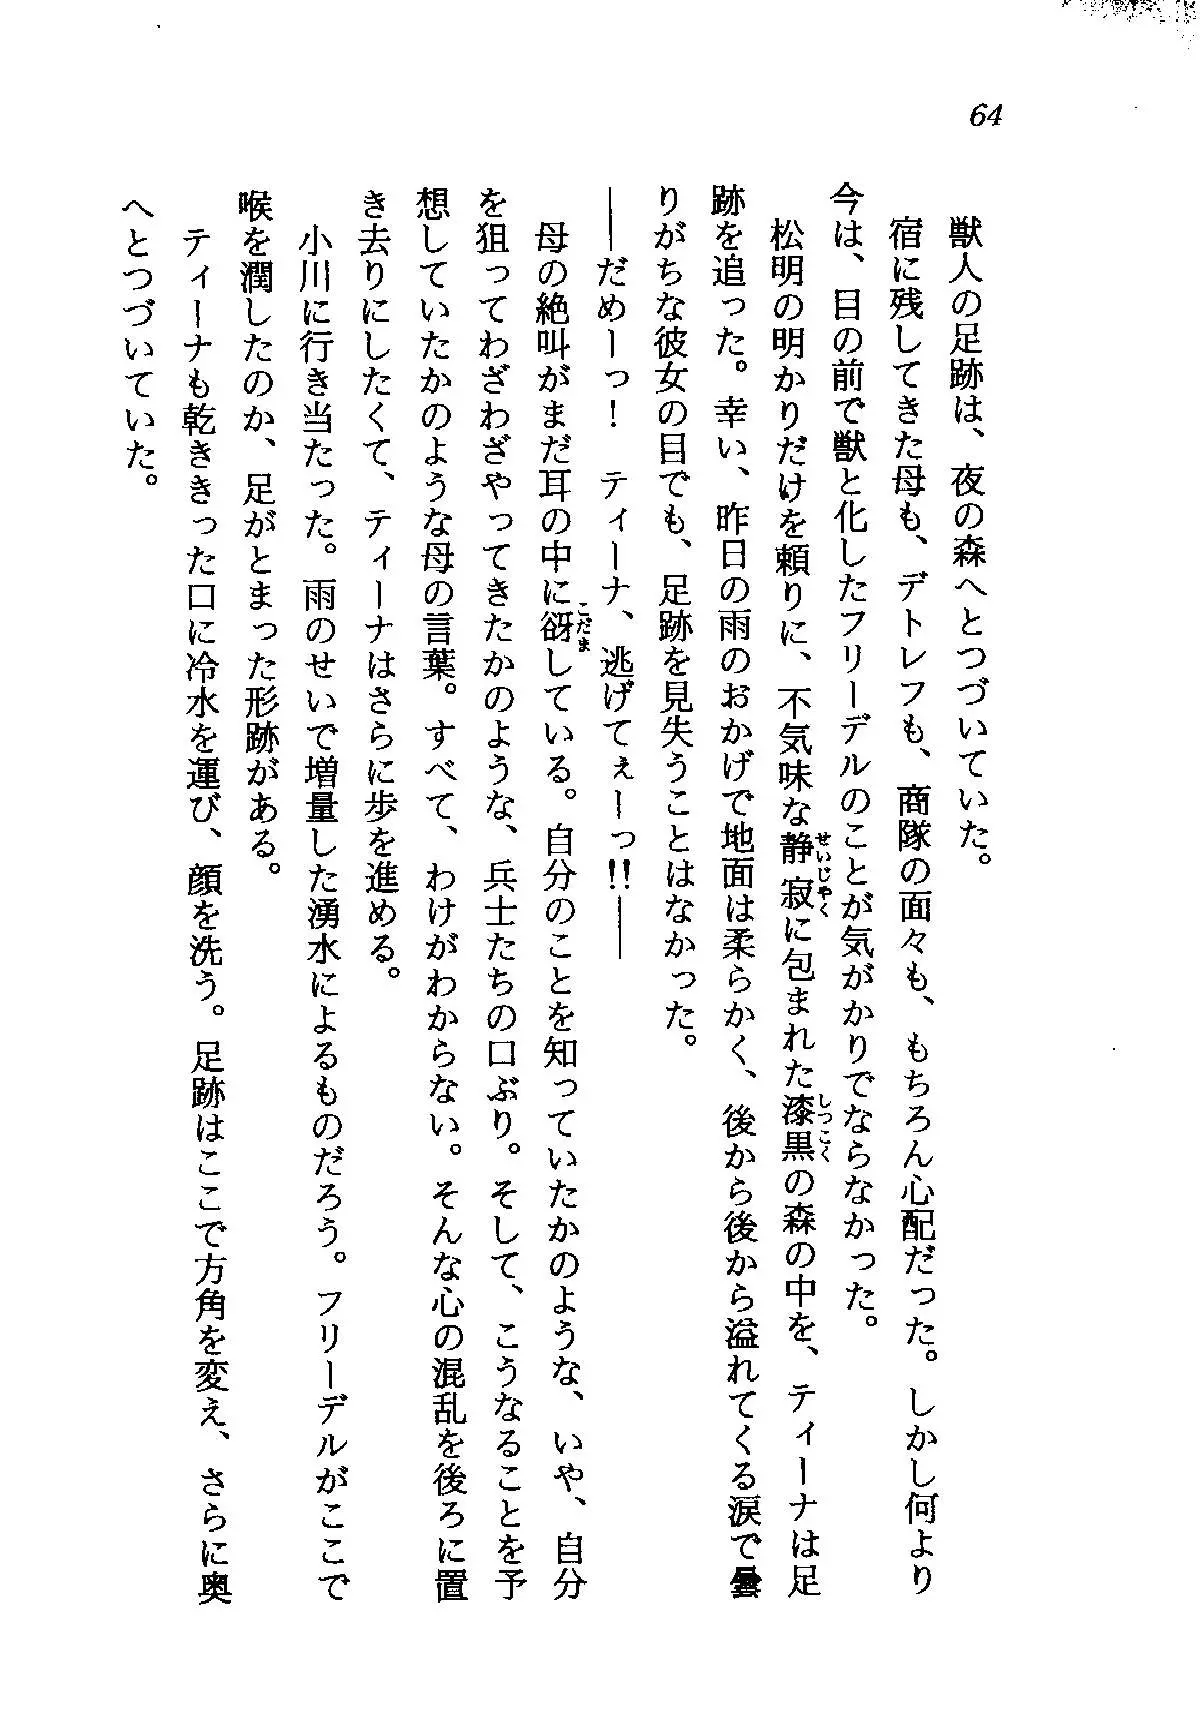 64
獣人の足跡は、夜の森へとつづいていた。
宿に残してきた母も、デトレフも、商隊の面々も、もちろん心配だった。しかし何より
今は、目の前で獣と化したフリーデルのことが気がかりでならなかった。
松明の明かりだけを頼りに、不気味な静寂に包まれた漆黒の森の中を、ティーナは足
せいじゃく
しっこく
跡を追った。幸い、昨日の雨のおかげで地面は柔らかく、後から後から溢れてくる涙で曇
りがちな彼女の目でも、足跡を見失うことはなかった。
――だめーっ！　ティーナ、逃げてぇーっ!!――
母の絶叫がまだ耳の中に谺している。自分のことを知っていたかのような、いや、自分
こだま
を狙ってわざわざやってきたかのような、兵士たちの口ぶり。そして、こうなることを予
想していたかのような母の言葉。すべて、わけがわからない。そんな心の混乱を後ろに置
き去りにしたくて、ティーナはさらに歩を進める。
小川に行き当たった。雨のせいで増量した湧水によるものだろう。フリーデルがここで
喉を潤したのか、足がとまった形跡がある。
ティーナも乾ききった口に冷水を運び、顔を洗う。足跡はここで方角を変え、さらに奥
へとつづいていた。